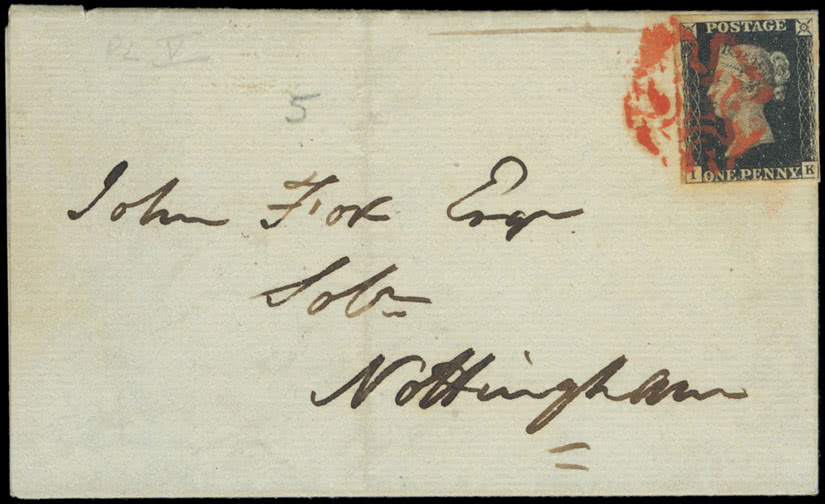 PL V
5
POSTAGE
I ONE PENNY K
John Fox Esqr
Solr
Nottingham